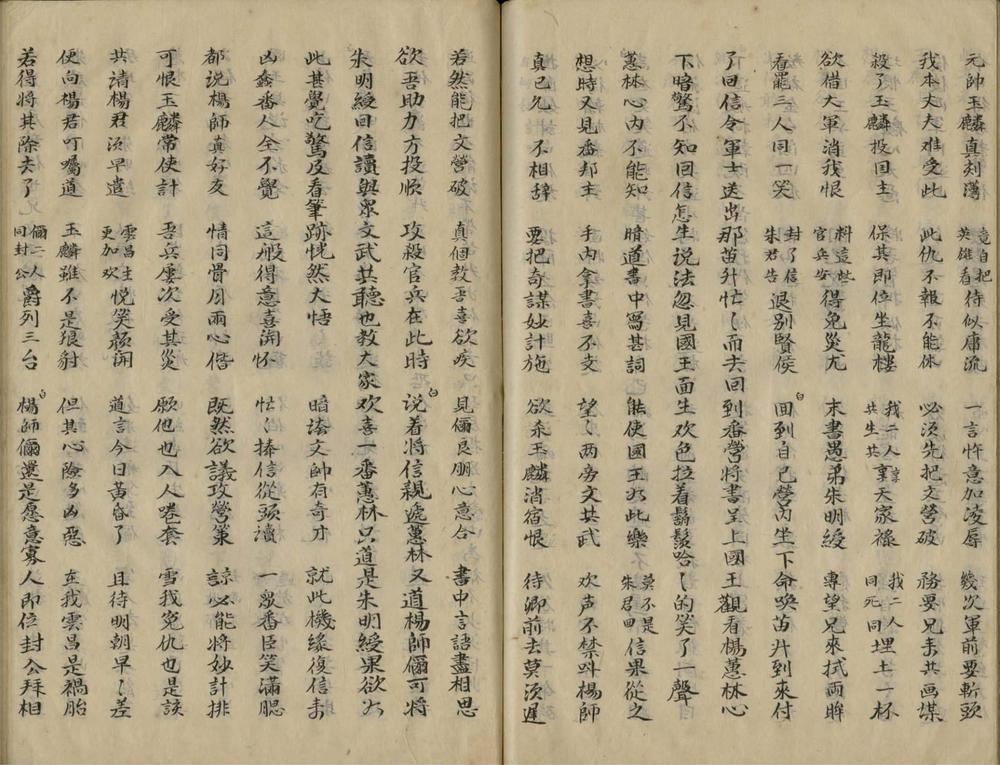 元帥玉麟真刻薄 竟自把英雄看待似庸流 一言忤意加凌辱 幾次軍前要斬頭
我本丈夫难受此 此仇不報不能休 必須先把文营破 務要兄来共画謀
殺了玉麟投国主 保其即位坐龍楼 我二人共生共享天家禄 我二人同死同埋土一杯
欲借大軍消我恨 料這些官兵安得免災尤 末書愚弟朱明綬 專望兄來拭両眸
看罷三人同一笑 封了信朱君告退别賢侯 回到自已營內坐下命唤苗升到來付
了回信令軍士送出那苗升忙〻而去回到番營將書呈上國王觀看楊蕙林心
下暗驚不知回信怎生说法忽見國王面生欢色拉着鬍鬚哈〻的笑了一聲
蕙林心内不能知 暗道書中寫甚詞 能使國王为此樂 莫不是朱君回信果從之
想時又見番邦主 手內拿書喜不支 望〻两旁文共武 欢声不禁叫楊師
真已久不相辞 要把奇謀妙計施 欲杀玉麟消宿恨 待卿前去莫须遲
若然能把文營破 真個教吾喜欲痴 見儞良朋心意合 書中言語盡相思
欲吾助力方投順 攻殺官兵在此時 说着將信親遞蕙林又道楊師儞可将
朱明綬回信讀與眾文武共聽也教大家欢喜一番蕙林只道是朱明綬果欲为
此甚覺吃驚及看筆跡恍然大悟 暗誇文帥有奇才 就此機緣復信来
凶蠢番人全不覺 這般得意喜開怀 忙〻捧信從頭讀 一眾番臣笑滿腮
都说楊師真好友 情同骨肉両心偕 既然欲議攻營策 諒必能將妙計排
可恨玉麟常使計 吾兵屡次受其災 願他也入人圈套 雪我冤仇也是該
共請楊君须早遣 雲昌主更加欢悅笑顔開 道言今日黃昏了 且待明朝早〻差
便向楊君叮囑道 玉麟雖不是狼豺 但其心險多凶惡 在我雲昌是禍胎
若得將其除去了 儞二人同封公爵列三台 楊師儞還是愿意寡人即位封公拜相